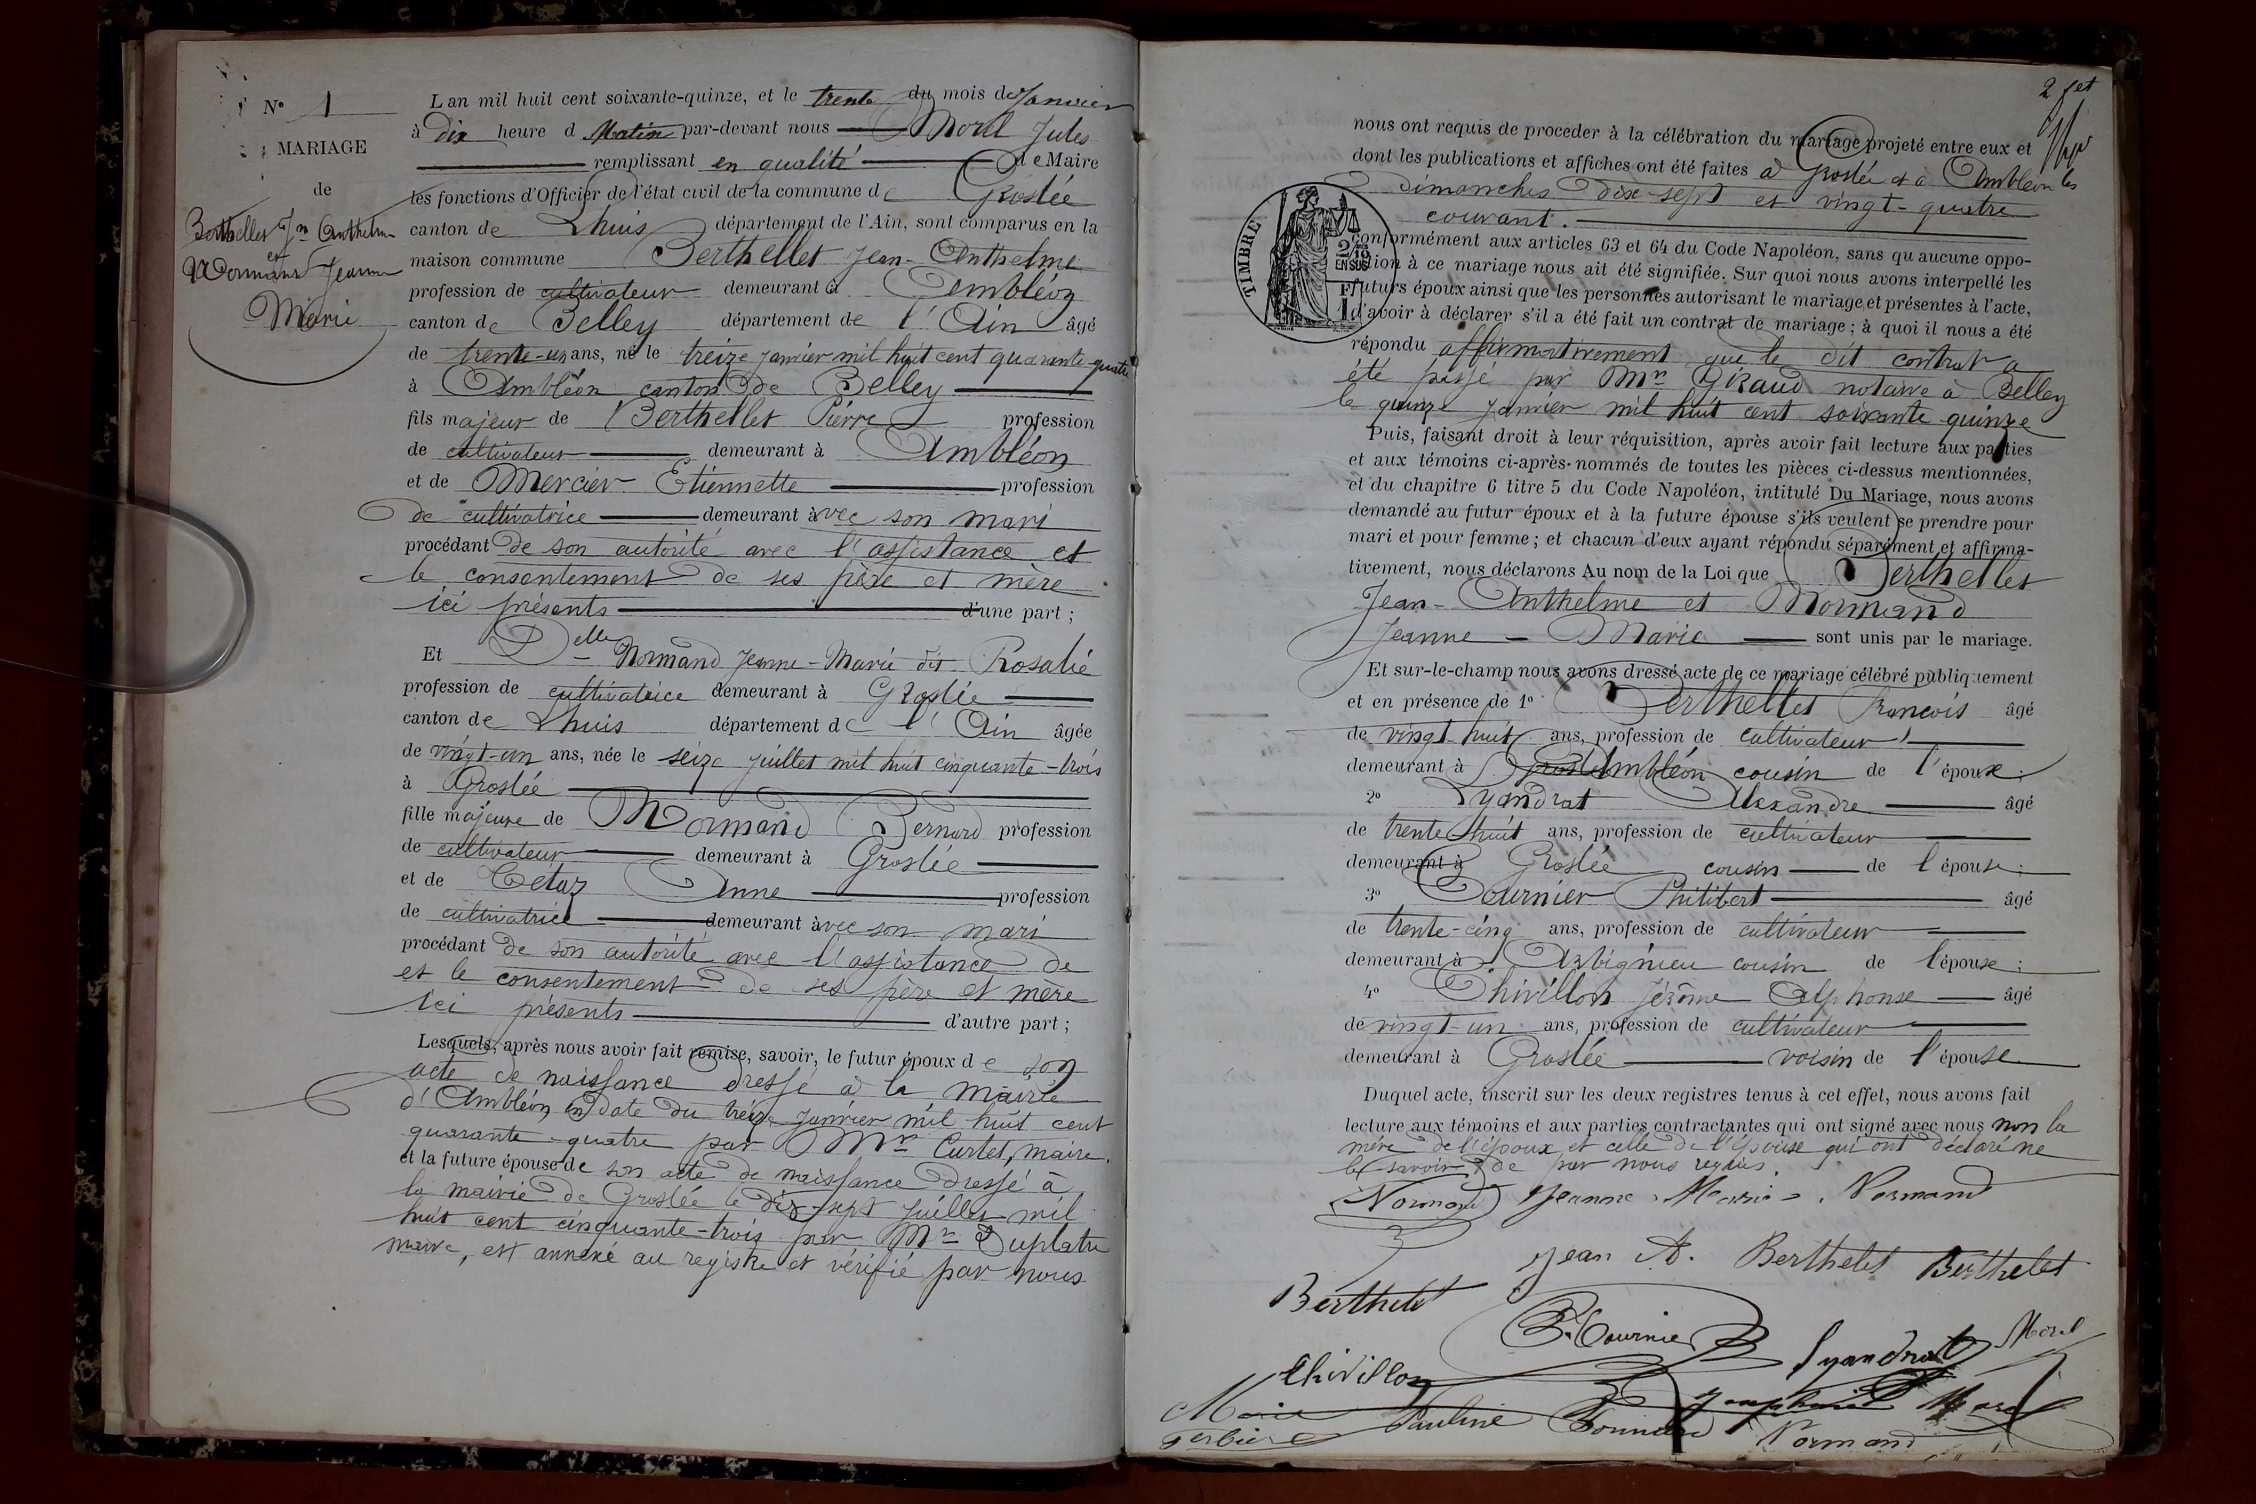 N° 1
MARIAGE
de
Berthellet Jn Anthelme
et
Normand Jeanne
Marie
L'an mil huit cent soixante-quinze, et le trente du mois de Janvier
à dix heure d Matin par-devant nous Morel Jules
remplissant en qualité de Maire
les fonctions d'Officier de l'état civil de la commune de Groslée
canton de Lhuis département de l'Ain, sont comparus en la
maison commune Berthellet Jean-Anthelme
profession de cultivateur demeurant à
canton de Belley département de l'Ain âgé
de trente-un ans, né le treize janvier mil huit cent quarante-quatre
à Ambléon canton de Belley
fils majeur de Berthellet Pierre profession
de cultivateur demeurant à Ambléon
et de Mercier Etiennette profession
de cultivatrice demeurant avec son mari
procédant de son autorité avec l'assistance et
le consentement de ses père et mère
ici présents d'une part ;
Et Delle Normand Jeanne-Marie dit Rosalie
profession de cultivatrice demeurant à Groslée
canton de Lhuis département de l'Ain âgée
de vingt-un ans, née le seize juillet mil huit cinquante-trois
à Groslée
fille majeure de Normand Bernard profession
de cultivateur demeurant à Groslée
et de Cétaz Anne profession
de cultivatrice demeurant avec son mari
procédant de son autorité avec l'assistance de
et le consentement de ses père et mère
ici présents d'autre part ;
Lesquels, après nous avoir fait remise, savoir, le futur époux de son
acte de naissance dressé à la mairie
d'Ambléon en date du treize janvier mil huit cent
quarante-quatre par Mr Curtet, maire.
et la future épouse de son acte de naissance dressé à
la mairie de Groslée le dix-sept juillet mil
huit cent cinquante-trois par Mr Duplatre
maire, est annexé au registre et vérifié par nous
2 fet
nous ont requis de proceder à la célébration du mariage projeté entre eux et
dont les publications et affiches ont été faites à Groslée et à Ambléon les
dimanches dix-sept et vingt-quatre
courant.
TIMBRE
2/10
EN SUS
1F
conformément aux articles 63 et 64 du Code Napoléon, sans qu'aucune oppo-
sition à ce mariage nous ait été signifiée. Sur quoi nous avons interpellé les
futurs époux ainsi que les personnes autorisant le mariage et présentes à l'acte,
d'avoir à déclarer s'il a été fait un contrat de mariage ; à quoi il nous a été
répondu affirmativement que le dit contrat a
été passé par Mr Giraud notaire à Belley
le quinze janvier mil huit cent soixante quinze
Puis, faisant droit à leur réquisition, après avoir fait lecture aux parties
et aux témoins ci-après-nommés de toutes les pièces ci-dessus mentionnées,
et du chapitre 6 titre 5 du Code Napoléon, intitulé Du Mariage, nous avons
demandé au futur époux et à la future épouse s'ils veulent se prendre pour
mari et pour femme ; et chacun d'eux ayant répondu séparément et affirma-
tivement, nous déclarons Au nom de la Loi que Berthellet
Jean-Anthelme et Normand
Jeanne-Marie sont unis par le mariage.
Et sur-le-champ nous avons dressé acte de ce mariage célébré publiquement
et en présence de 1° Berthellet François âgé
de vingt huit ans, profession de cultivateur
demeurant à Ambléon cousin de l'époux ;
2° Lyandrat Alexandre âgé
de trente huit ans, profession de cultivateur
demeurant à Groslée cousin de l'épouse ;
3° Tournier Philibert âgé
de trente-cinq ans, profession de cultivateur
demeurant à Arbignieu cousin de l'épouse ;
4° Chivillon Jérôme Alphonse âgé
de vingt-un ans, profession de cultivateur
demeurant à Groslée voisin de l'épouse
Duquel acte, inscrit sur les deux registres tenus à cet effet, nous avons fait
lecture aux témoins et aux parties contractantes qui ont signé avec nous non la
mère de l'époux et celle de l'épouse qui ont déclaré ne
le savoir de par nous requis.
Normand Jeanne-Marie Normand
Jean A. Berthelet Berthelet
Berthelet
P. Tournier Lyandrat Morel
Chivillon
Marie Pauline Morel
Normand